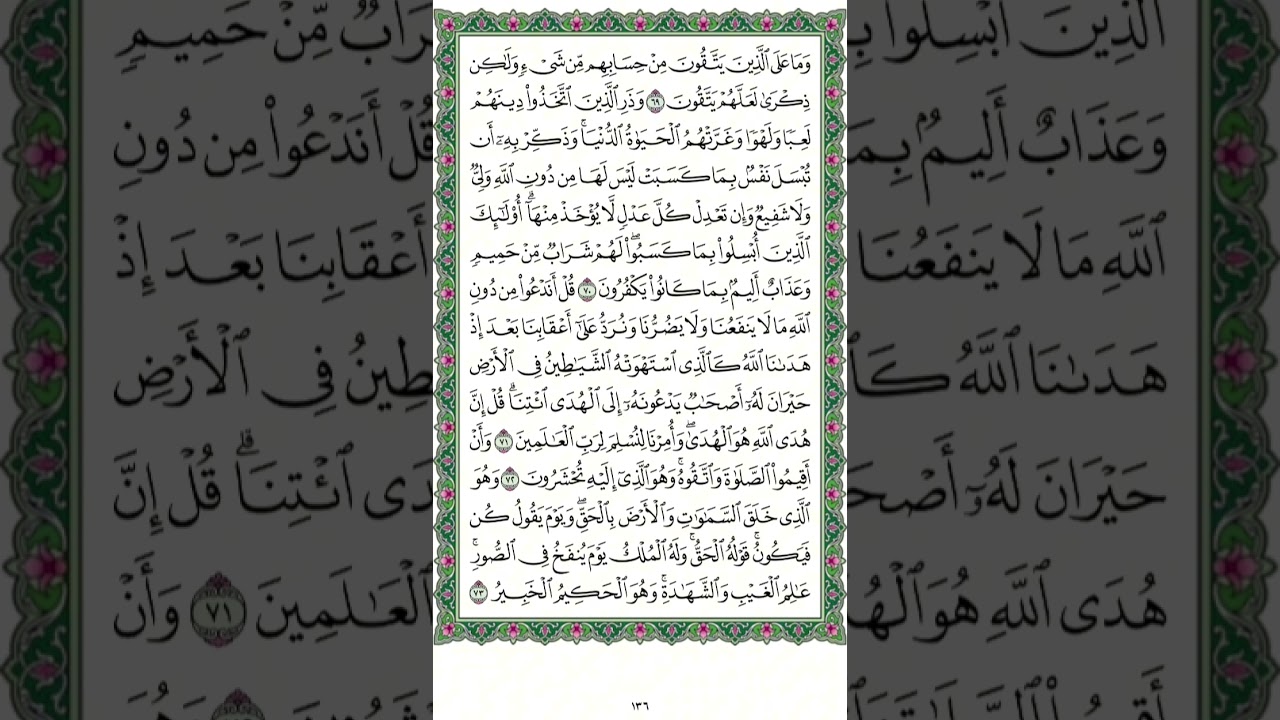 وَمَا عَلَى ٱلَّذِينَ يَتَّقُونَ مِنۡ حِسَابِهِم مِّن شَيۡءٖ وَلَٰكِن
ذِكۡرَىٰ لَعَلَّهُمۡ يَتَّقُونَ ٦٩ وَذَرِ ٱلَّذِينَ ٱتَّخَذُواْ دِينَهُمۡ
لَعِبٗا وَلَهۡوٗا وَغَرَّتۡهُمُ ٱلۡحَيَوٰةُ ٱلدُّنۡيَاۚ وَذَكِّرۡ بِهِۦٓ أَن
تُبۡسَلَ نَفۡسُۢ بِمَا كَسَبَتۡ لَيۡسَ لَهَا مِن دُونِ ٱللَّهِ وَلِيّٞ
وَلَا شَفِيعٞ وَإِن تَعۡدِلۡ كُلَّ عَدۡلٖ لَّا يُؤۡخَذۡ مِنۡهَآۗ أُوْلَٰٓئِكَ
ٱلَّذِينَ أُبۡسِلُواْ بِمَا كَسَبُواْۖ لَهُمۡ شَرَابٞ مِّنۡ حَمِيمٖ
وَعَذَابٌ أَلِيمُۢ بِمَا كَانُواْ يَكۡفُرُونَ ٧٠ قُلۡ أَنَدۡعُواْ مِن دُونِ
ٱللَّهِ مَا لَا يَنفَعُنَا وَلَا يَضُرُّنَا وَنُرَدُّ عَلَىٰٓ أَعۡقَابِنَا بَعۡدَ إِذۡ
هَدَىٰنَا ٱللَّهُ كَٱلَّذِي ٱسۡتَهۡوَتۡهُ ٱلشَّيَٰطِينُ فِي ٱلۡأَرۡضِ
حَيۡرَانَ لَهُۥٓ أَصۡحَٰبٞ يَدۡعُونَهُۥٓ إِلَى ٱلۡهُدَى ٱئۡتِنَاۗ قُلۡ إِنَّ
هُدَى ٱللَّهِ هُوَ ٱلۡهُدَىٰۖ وَأُمِرۡنَا لِنُسۡلِمَ لِرَبِّ ٱلۡعَٰلَمِينَ ٧١ وَأَنۡ
أَقِيمُواْ ٱلصَّلَوٰةَ وَٱتَّقُوهُۚ وَهُوَ ٱلَّذِيٓ إِلَيۡهِ تُحۡشَرُونَ ٧٢ وَهُوَ
ٱلَّذِي خَلَقَ ٱلسَّمَٰوَٰتِ وَٱلۡأَرۡضَ بِٱلۡحَقِّۖ وَيَوۡمَ يَقُولُ كُن
فَيَكُونُۚ قَوۡلُهُ ٱلۡحَقُّۚ وَلَهُ ٱلۡمُلۡكُ يَوۡمَ يُنفَخُ فِي ٱلصُّورِۚ
عَٰلِمُ ٱلۡغَيۡبِ وَٱلشَّهَٰدَةِۚ وَهُوَ ٱلۡحَكِيمُ ٱلۡخَبِيرُ ٧٣
١٣٦